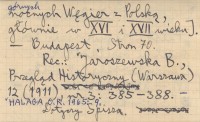 górnych
nożnych Węgier z Polską,
głównie w XVI i XVII wieku].
— Budapest. Stron 70.
Rec.: Jaroszewska B.,
Przegląd Historyczny (Warszawa)
12 (1911) nr 3: 385-388. —
MALAGA C.R. 1965-9.
Spisza.